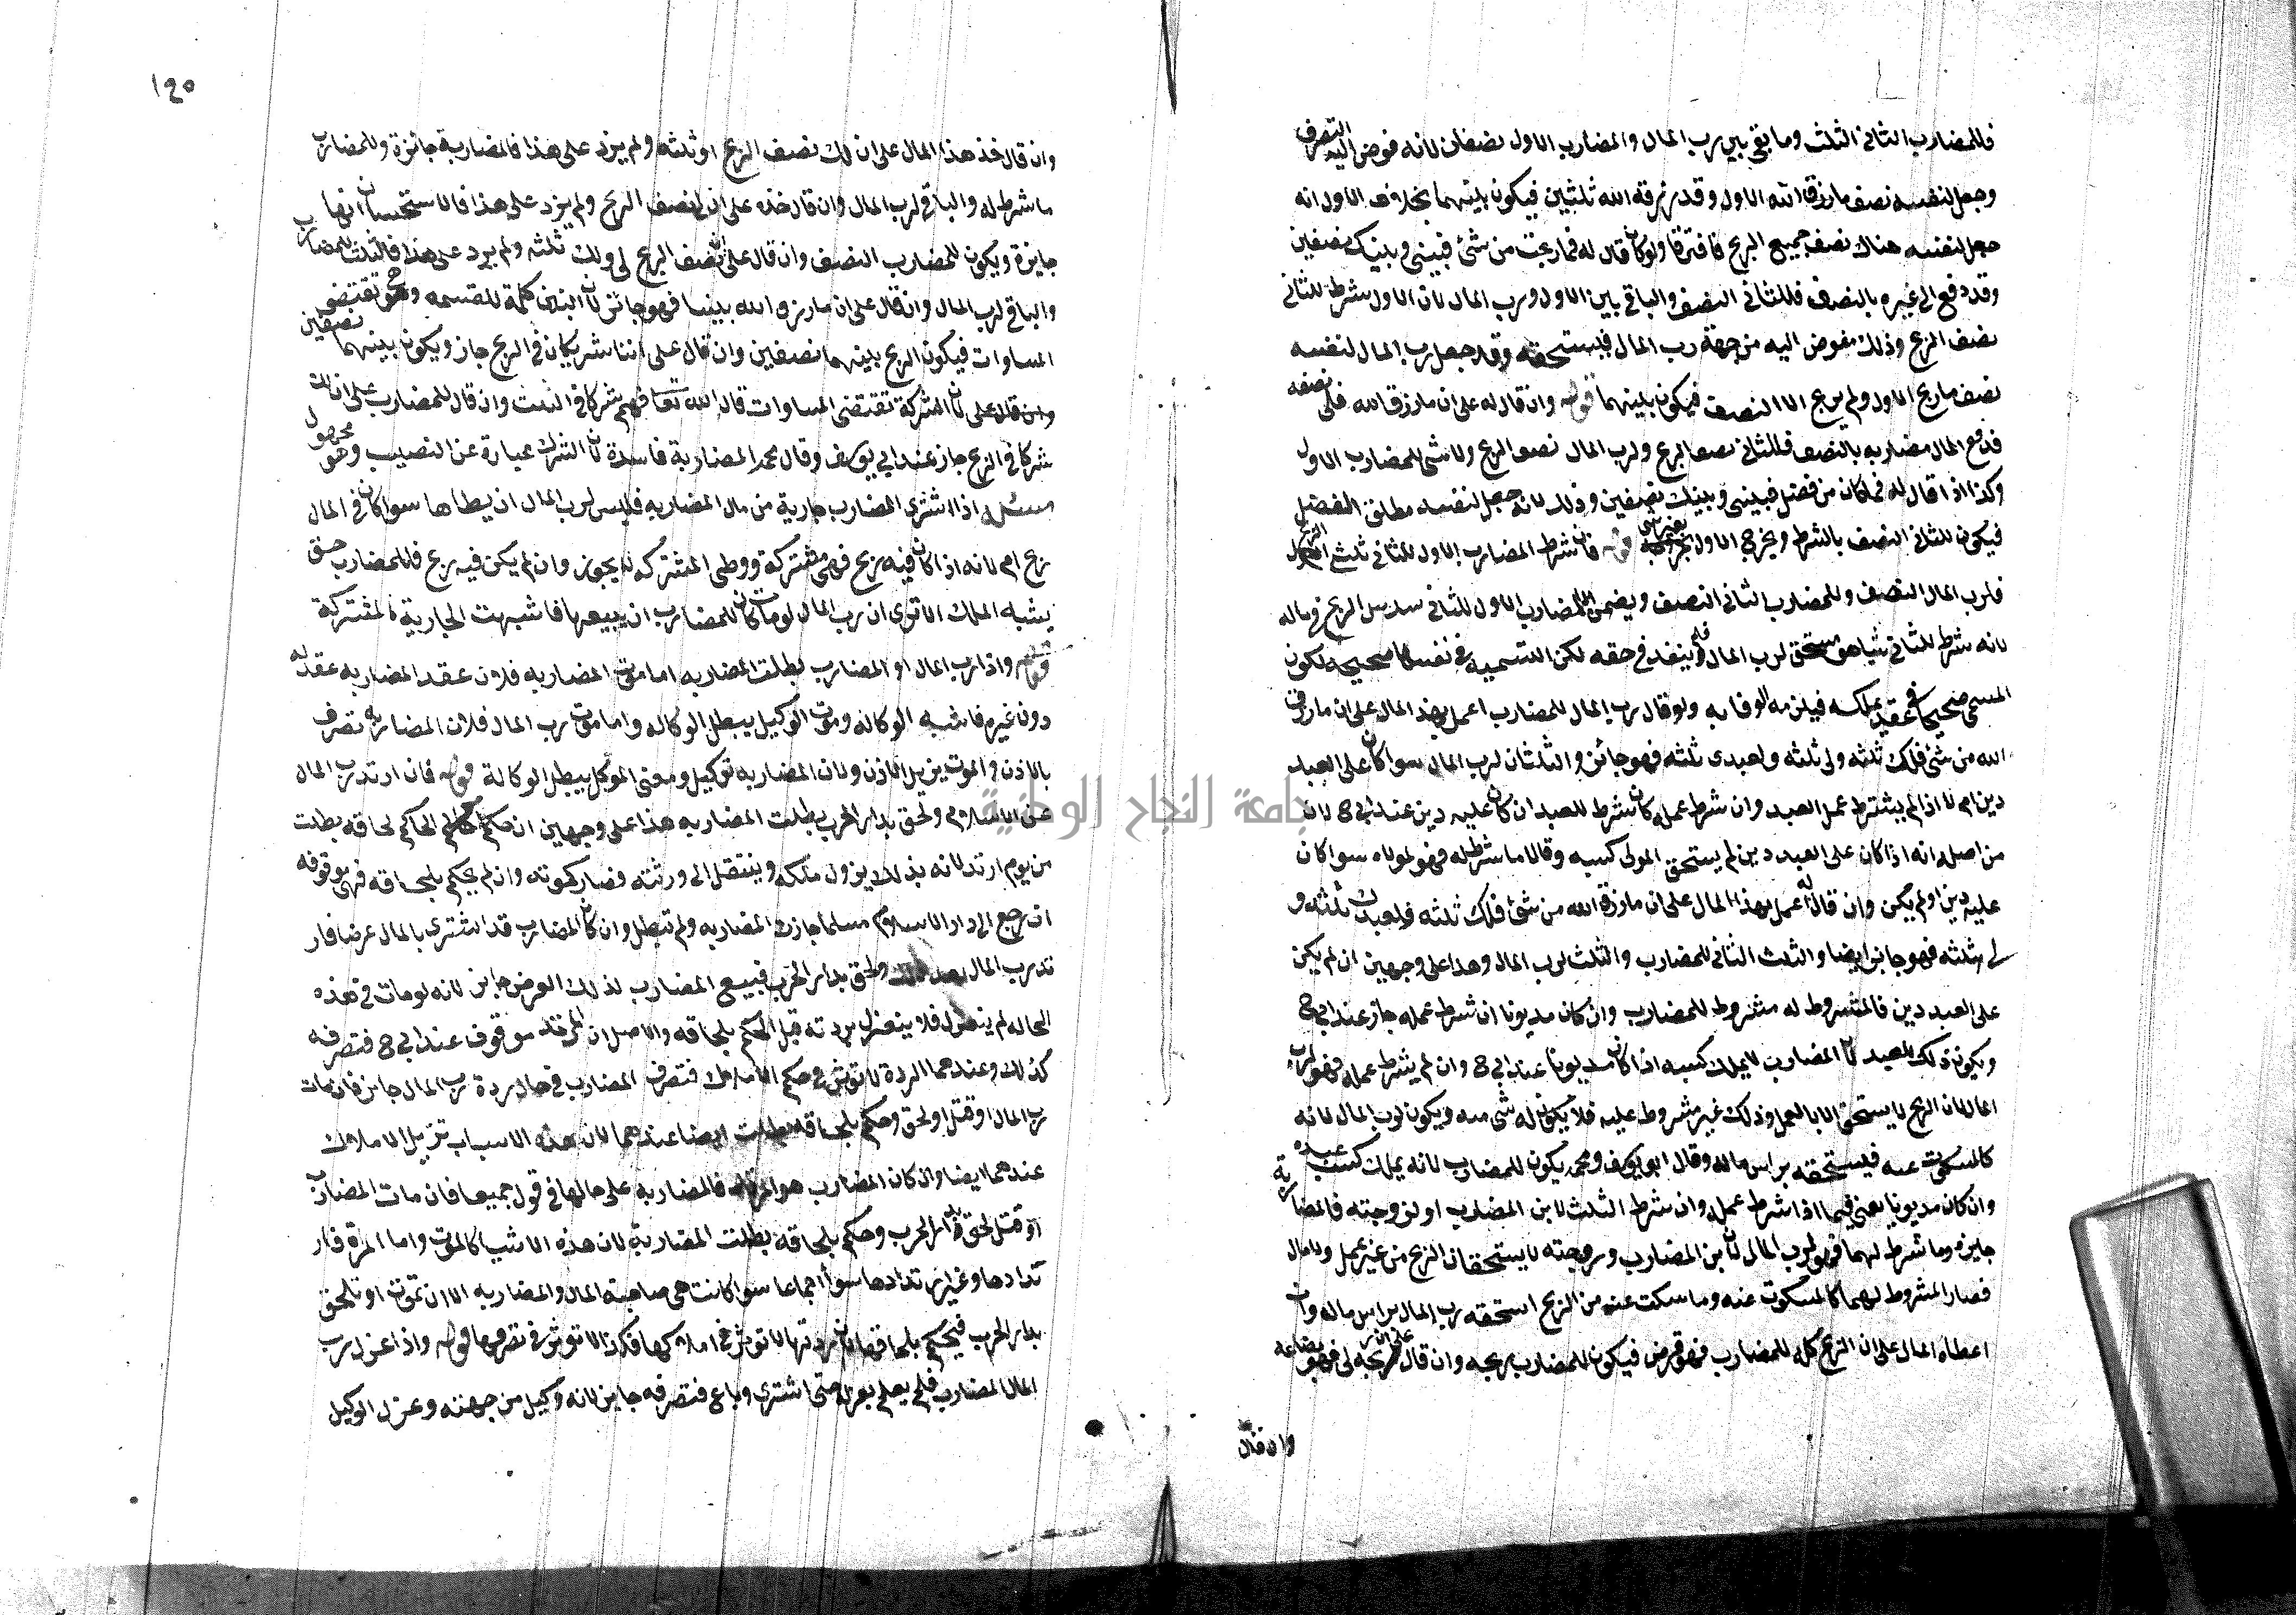 فللمضارب الثاني الثلث وما بقي بين رب المال والمضارب الاول نصفان لانه فوض اليه التصرف
وجعل لنفسه نصف ما رزق الله الاول وقد رزقه الله ثلثين فيكون بينهما بخلاف الاول انه
جعل لنفسه هناك نصف جميع الربح فافترقا ولو كان قال له فما ربحت من شئ فبيني وبينك نصفين
وقد دفع الى غيره بالنصف فللثاني النصف والباقي بين الاول ورب المال لان الاول شرط للثاني
نصف الربح وذلك مفوض اليه من جهة رب المال فيستحقه وقد جعل رب المال لنفسه
نصف ما ربح الاول ولم يربح الا النصف فيكون بينهما قوله وان قال له على ان ما رزق الله فلي نصفه
فدفع المال مضاربه بالنصف فللثاني نصف الربح ولرب المال نصف الربح ولا شئ للمضارب الاول
وكذا اذا قال له فما كان من فضل فبيني وبينك نصفين وذلك لانه جعل لنفسه مطلق الفضل
فيكون للثاني النصف بالشرط ويخرج الاول بغير شئ قوله فان شرط المضارب الاول للثاني ثلثي الربح
فلرب المال النصف وللمضارب الثاني النصف ويضمن المضارب الاول للثاني سدس الربح في ماله
لانه شرط للثاني شيا هو مستحق لرب المال فلم ينفذ في حقه لكن التسمية في نفسها صحيحه لكون
المسمى صحيحا في عقد يملكه فيلزمه الوفا به ولو قال رب المال للمضارب اعمل بهذا المال على ان ما رزق
الله من شئ فلك ثلثه ولي ثلثه ولعبدي ثلثه فهو جائز والثلثان لرب المال سوا كان على العبد
دين ام لا اذا لم يشترط عمل العبد وان شرط عمله كان شرط للعبد ان كان عليه دين عند ابي 8 لان
من اصله انه اذا كان على العبد دين لم يستحق المولى كسبه وقالا ما شرط له فهو لمولاه سوا كان
عليه دين او لم يكن وان قال له اعمل بهذا المال على ان ما رزق الله من شئ فلك ثلثه ولعبدك ثلثه و
لي ثلثه فهو جائز ايضا والثلث الثاني للمضارب والثلث لرب المال وهذا على وجهين ان لم يكن
على العبد دين فالمشروط له مشروط للمضارب وان كان مديونا ان شرط عمله جاز عند ابي 8
ويكون ذلك للعبد لان المضارب لا يملك كسبه اذا كان مديونا عند ابي 8 وان لم يشرط عمله فهو لرب
المال لان الربح لا يستحق الا بالعمل وذلك غير مشروط عليه فلا يكون له شئ منه ويكون لرب المال لانه
كالمسكوت عنه فيستحقه براس ماله وقال ابو يوسف ومحمد يكون للمضارب لانه يملك كسب عبده
وان كان مديونا يعني فيما اذا شرط عمله وان شرط الثلث لابن المضارب او لزوجته فالمضاربة
جايزه وما شرط لهما فهو لرب المال لان ابن المضارب وزوجته لا يستحقان الربح من غير عمل ولا مال
فصار المشروط لهما كالمسكوت عنه وما سكت عنه من الربح استحقه رب المال براس ماله وان
اعطاه المال على ان الربح كله للمضارب فهو قرض فيكون للمضارب ربحه وان قال على ان ربحه لي فهو بضاعه
وان قال
١٩٥
وان قال خذ هذا المال على ان لك نصف الربح او ثلثه ولم يزد على هذا فالمضاربة جائزة وللمضارب
ما شرط له والباقي لرب المال وان قال خذه على ان لي نصف الربح ولم يزد على هذا فالاستحسان انها
جايزة ويكون للمضارب النصف وان قال على ان نصف الربح لي ولك ثلثه ولم يزد على هذا فالثلث للمضارب
والباقي لرب المال وان قال على ان ما رزق الله بيننا فهو جائز لان البين كلمة للقسمه وهي تقتضي
المساوات فيكون الربح بينهما نصفين وان قال على اننا شريكان في الربح جاز ويكون بينهما نصفين
لان الشركة تقتضي المساوات قال الله تعا فهم شركا في الثلث وان قال للمضارب على ان لك
شركا في الربح جاز عند ابي يوسف وقال محمد المضاربة فاسدة لان الشرك عبارة عن النصيب وهو مجهول
مسئله اذا اشترى المضارب جارية من مال المضاربه فليس لرب المال ان يطاها سوا كان في المال
ربح ام لا لانه اذا كان فيه ربح فهي مشتركة ووطى المشتركه لا يجوز وان لم يكن فيه ربح فللمضارب حق
يشبه الملك الا ترى ان رب المال لو مات كان للمضارب ان يبيعها فاشبهت الجارية المشتركة
قوله واذا رب المال او المضارب بطلت المضاربه اما موت المضارب فلان عقد المضاربه عقد له
دون غيره فاشبه الوكاله وموت الوكيل يبطل الوكاله واما موت رب المال فلان المضاربه تصرف
بالاذن والموت يزيل الاذن ولان المضاربه توكيل ومعنى الموكل يبطل الوكالة قوله فان ارتد رب المال
عن الاسلام ولحق بدار الحرب بطلت المضاربه هذا على وجهين ان حكم الحاكم بلحاقه بطلت
من يوم ارتد لانه بذلك يزول ملكه وينتقل الى ورثته فصار كموته وان لم يحكم بلحاقه فهي موقوفه
ان رجع الى دار الاسلام مسلما جازت المضاربه ولم تبطل وان كان المضارب قد اشترى بالمال عرضا فار
تد رب المال بعد ذلك ولحق بدار الحرب فبيع المضارب لذلك العرض جايز لانه لو مات في هذه
الحاله لم ينعزل فلا ينعزل بردته قبل الحكم بلحاقه والاصل ان المرتد موقوف عند ابي 8 فتصرفه
كذلك وعندهما الردة لا تؤثر في حكم الاملاك فتصرف المضارب في حال ردة رب المال جايز فان مات
رب المال او قتل او لحق وحكم بلحاقه بطلت ايضا عندهما لان هذه الاسباب تزيل الاملاك
عندهما ايضا وان كان المضارب هو المرتد فالمضاربه على حالها في قول جميعا فان مات المضارب
او قتل لحق بدار الحرب وحكم بلحاقه بطلت المضاربة لان هذه الاشيا كالموت واما المرة فار
تدادها وغير ارتدادها سوا اجماعا سوا كانت هي صاحبة المال والمضاربه الا ان تموت او تلحق
بدار الحرب فيحكم بلحاقها لان ردتها لا تؤثر في املاكها فكذا لا توثر في تصرفها قوله واذا عزل رب
المال المضارب فلم يعلم بعزله حتى اشترى وباع فتصرفه جايز لانه وكيل من جهته وعزل الوكيل
جامعة النجاح الوطنية